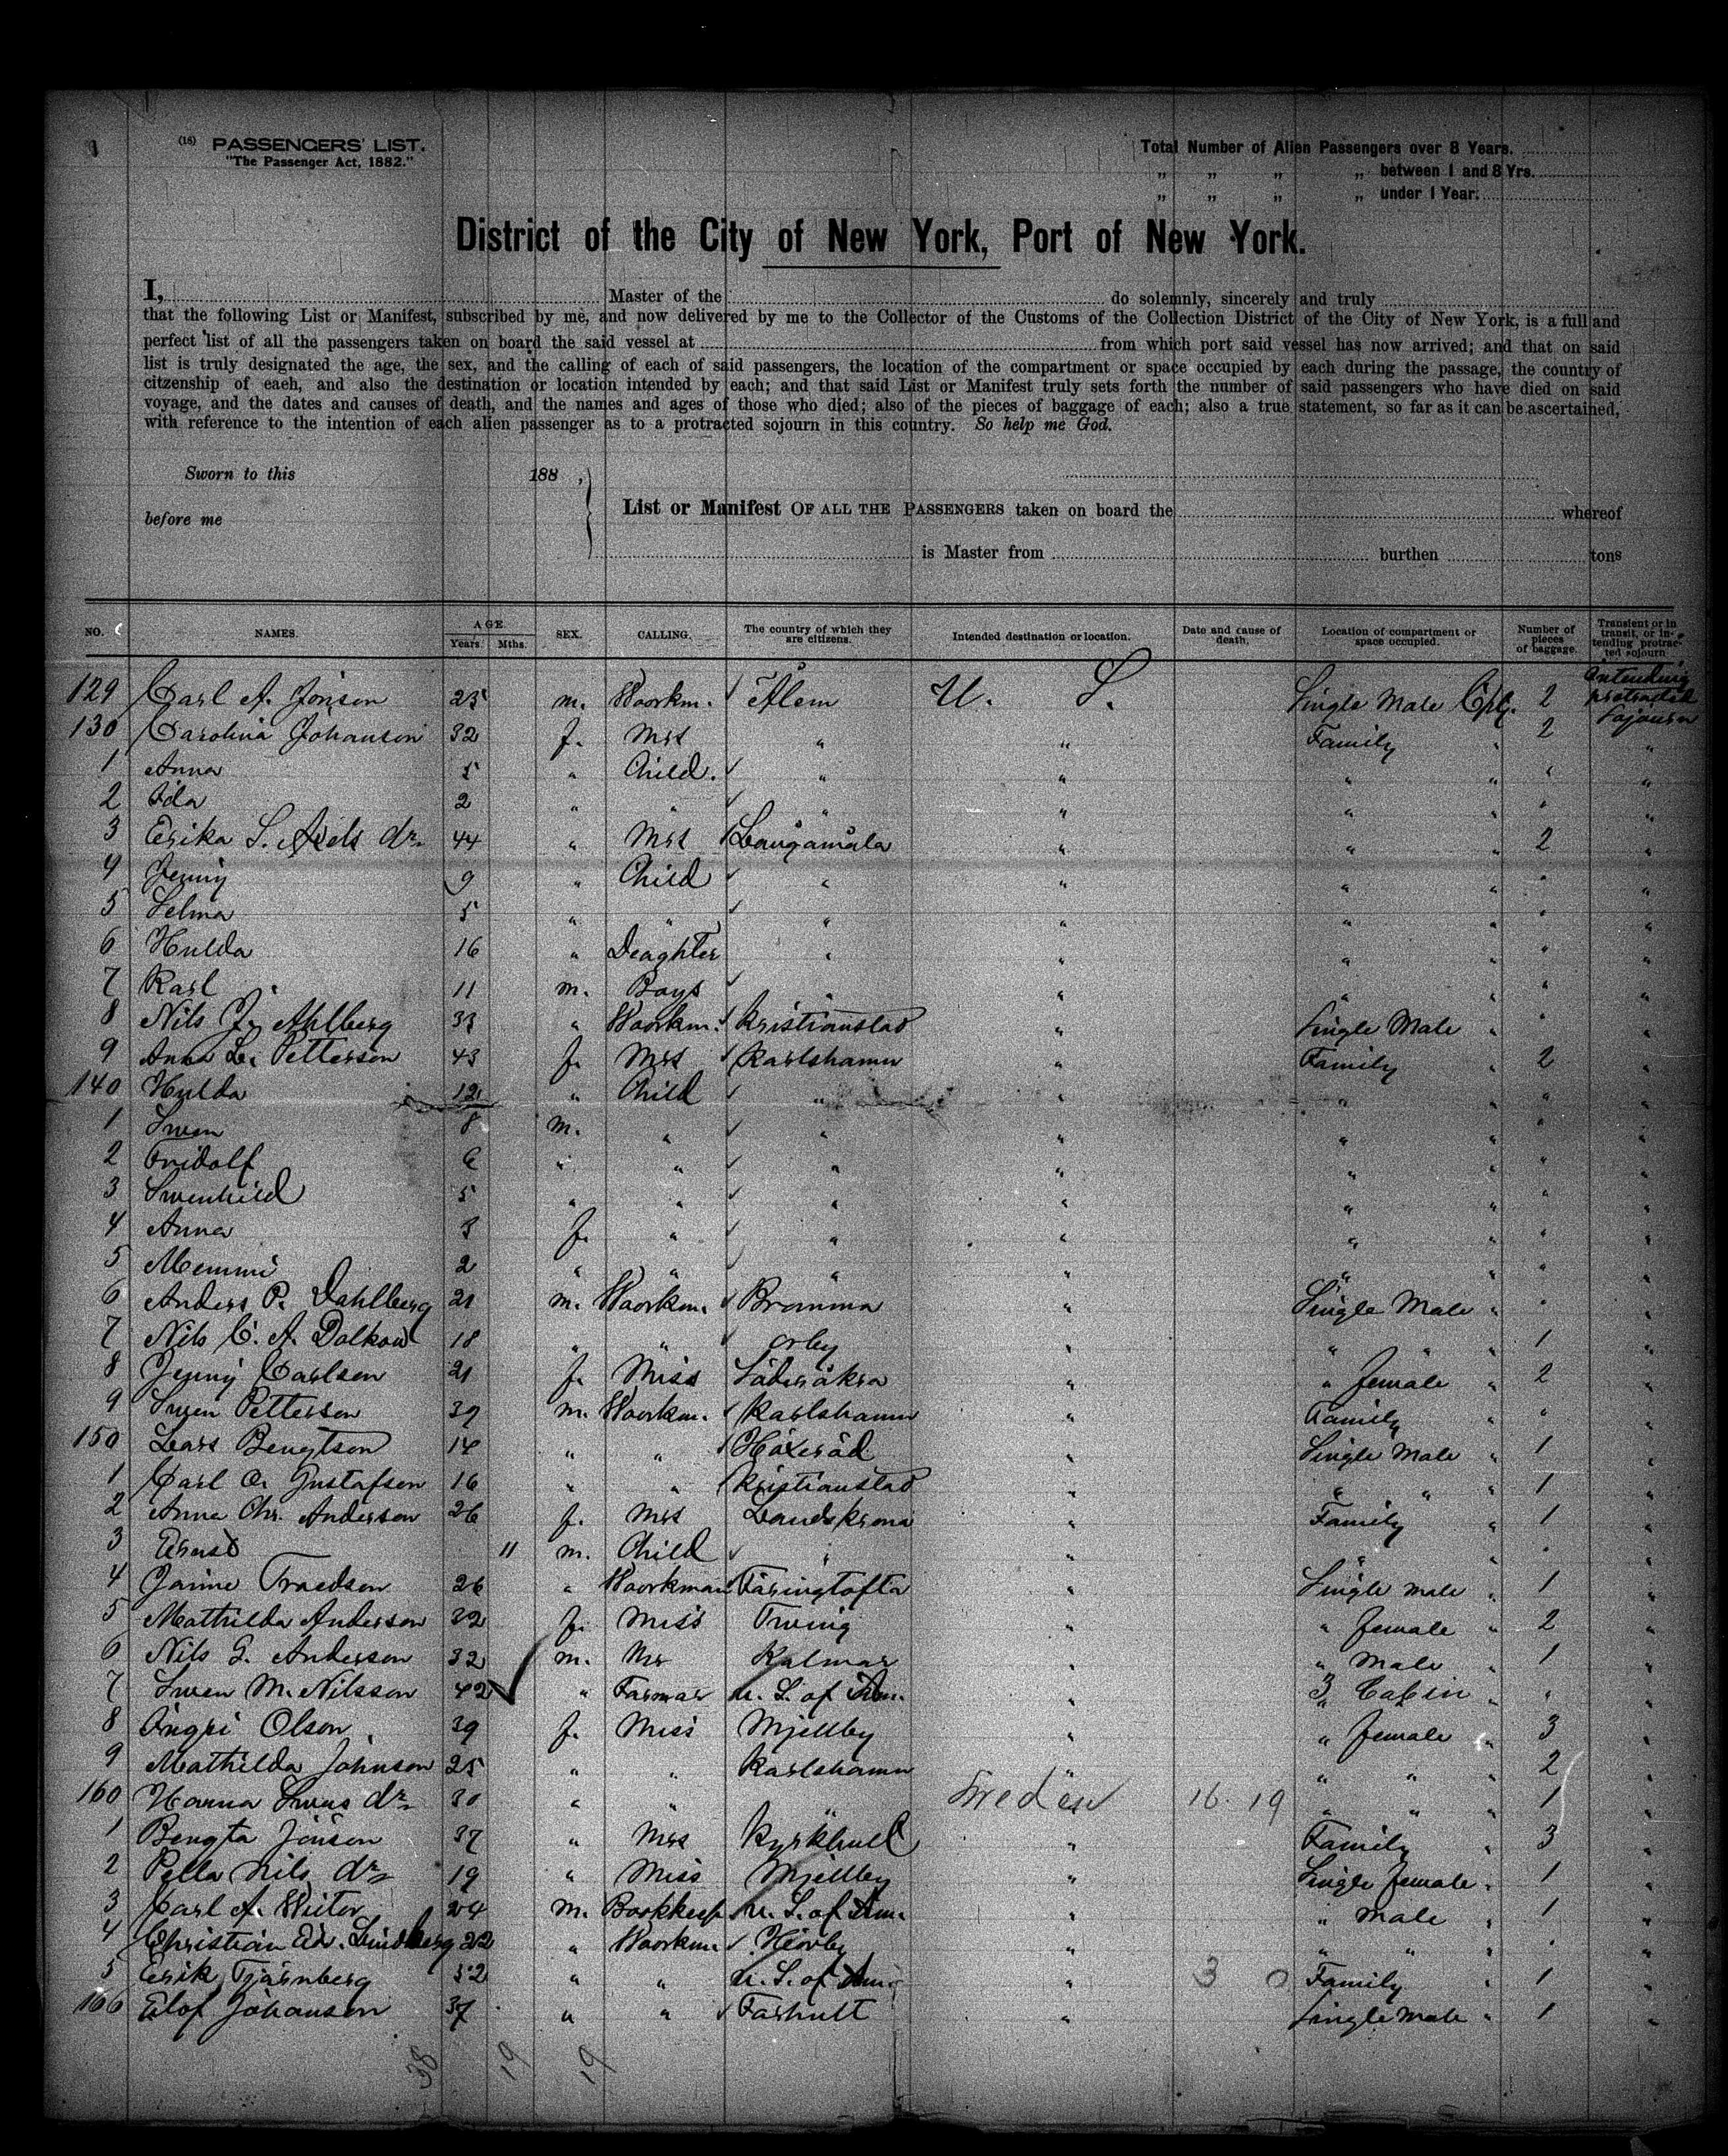 (16) PASSENGERS' LIST.
"The Passenger Act, 1882."
Total Number of Alien Passengers over 8 Years.
„ „ „ „ between 1 and 8 Yrs.
„ „ „ „ under 1 Year.
District of the City of New York, Port of New York.
I, Master of the do solemnly, sincerely and truly
that the following List or Manifest, subscribed by me, and now delivered by me to the Collector of the Customs of the Collection District of the City of New York, is a full and
perfect list of all the passengers taken on board the said vessel at from which port said vessel has now arrived; and that on said
list is truly designated the age, the sex, and the calling of each of said passengers, the location of the compartment or space occupied by each during the passage, the country of
citzenship of eaeh, and also the destination or location intended by each; and that said List or Manifest truly sets forth the number of said passengers who have died on said
voyage, and the dates and causes of death, and the names and ages of those who died; also of the pieces of baggage of each; also a true statement, so far as it can be ascertained,
with reference to the intention of each alien passenger as to a protracted sojourn in this country. So help me God.
Sworn to this 188 ,
before me
List or Manifest OF ALL THE PASSENGERS taken on board the whereof
is Master from burthen tons
NO. NAMES. AGE Years. Mths. SEX. CALLING. The country of which they are citizens. Intended destination or location. Date and cause of death. Location of compartment or space occupied. Number of pieces of baggage. Transient or in transit, or intending protracted sojourn
129 Carl A. Jönson 25 m. Woorkm. Ålem U. S. Single Male Cpl. 2 intending protracted Sojourn
130 Carolina Johanson 32 f. Mrs " " Family " 2 "
1 Anna 5 " Child. " " " " " "
2 Ida 2 " " " " " " " "
3 Erika S. Axels dr. 44 " Mrs Långamåla " " " 2 "
4 Jenny 9 " Child " " " " " "
5 Selma 5 " " " " " " " "
6 Hulda 16 " Deaghter " " " "
7 Karl 11 m. Boys " " " " " "
8 Nils J. Ahlberg 33 " Woorkm. Kristianstad " Single Male " " "
9 Anna L. Petterson 43 f. Mrs Karlshamn " Family " 2 "
140 Hulda 12 " Child " " " " " "
1 Swen 8 m. " " " " " " "
2 Fridolf 6 " " " " " " " "
3 Swenhild 5 " " " " " " " "
4 Anna 3 f. " " " " " " "
5 Memmi 2 " " " " " " " "
6 Anders P. Dahlberg 21 m. Woorkm. Bromma " Single Male " " "
7 Nils C. A. 18 " " Örby " " " 1 "
8 Jenny Carlson 21 f. Miss Söderåkra " " female " 2 "
9 Swen Petterson 39 m. Woorkm. Karlshamn " Family " " "
150 Lars Bengtson 14 " " " Single Male " 1 "
1 Carl O. Gustafson 16 " " Kristianstad " " " 1 "
2 Anna Chr. Anderson 26 f. Mrs Landskrona " Family " 1 "
3 Ernst 11 m. Child " " " " " "
4 Janne Traedson 26 " Woorkman Färingtofta " Single male " 1 "
5 Mathilda Anderson 32 f. Miss Twing " " female " 2 "
6 Nils G. Anderson 32 m. Mr Kalmar " " Male " 1 "
7 Swen M. Nilsson 42 " Farmar U. S. of Am. " 3 Cabin " " "
8 Ingri Olson 39 f. Miss Mjellby " " female " 3 "
9 Mathilda Johnson 25 " " Karlshamn " " " 2 "
160 Hanna Swens dr. 30 " " " Sweden 16 19 " " " 1 "
1 Bengta Jönson 37 " Mrs Kyrkhult " Family " 3 "
2 Pella Nils dr. 19 " Miss Mjellby " Single female " 1 "
3 Carl A. 24 m. Bookkeep U. S. of Am. " " Male " 1 "
4 Christian Ed. Lindberg 22 " Woorkm. Hörby " " " " "
5 Erik Tjärnberg 32 " " U. S. of Am. " 3 0 Family " 1 "
166 Elof Johanson 37 " " Farhult " Single male " 1 "
38 19 19